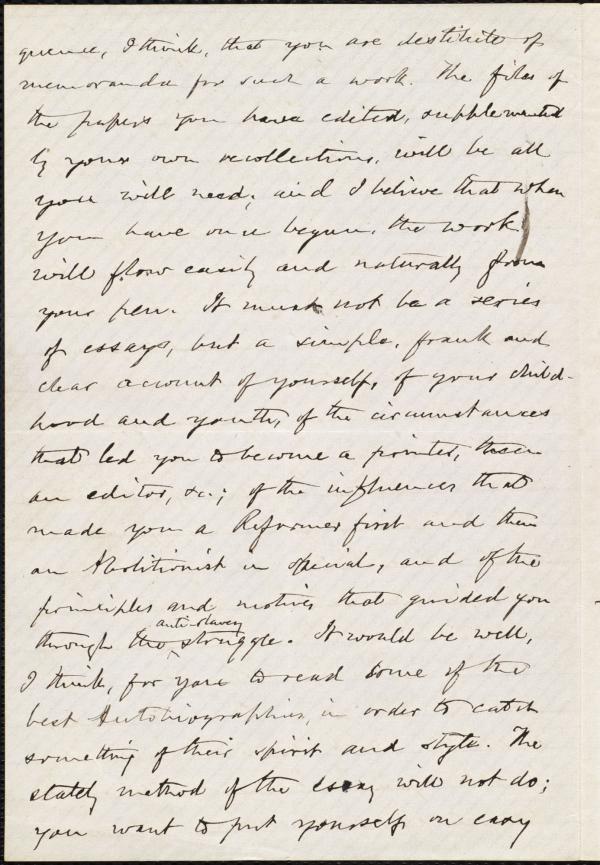 quence, I think, that you are destitute of
memoranda for such a work. The files of
the papers you have edited, supplemented
by your own recollections, will be all
you will need; and I believe that when
you have once begun, the work
will flow easily and naturally from
your pen. It must not be a series
of essays, but a simple, frank and
clear account of yourself, of your child-
hood and youth, of the circumstances
that led you to become a printer, then
an editor, &c.; of the influences that
made you a Reformer first and then
an Abolitionist in special, and of the
principles and motives that guided you
through the anti-slavery struggle. It would be well,
I think, for you to read some of the
best Autobiographies, in order to catch
something of their spirit and style. The
stately method of the essay will not do;
you want to put yourself on easy